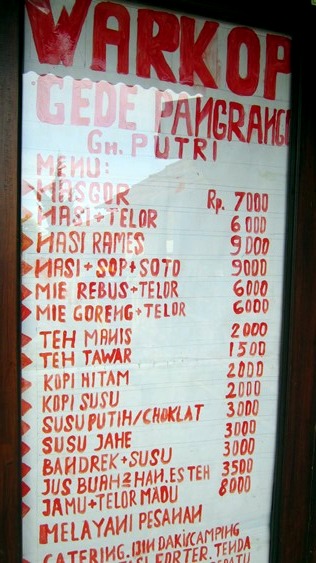 WARKOP
GEDE PANGRANGO
GH. PUTRI
MENU:
NASGOR Rp. 7000
NASI+TELOR 6000
NASI RAMES 9000
NASI+SOP+SOTO 9000
MIE REBUS+TELOR 6000
MIE GORENG+TELOR 6000
TEH MANIS 2000
TEH TAWAR 1500
KOPI HITAM 2000
KOPI SUSU 2000
SUSU PUTIH/CHOKLAT 3000
SUSU JAHE 3000
BANDREK+SUSU 3000
JUS BUAH2HAN.ES TEH 3500
JAMU+TELOR MADU 8000
MELAYANI PESANAN
CATERING.IJIN DAKI/CAMPING
PORTER. TENDA